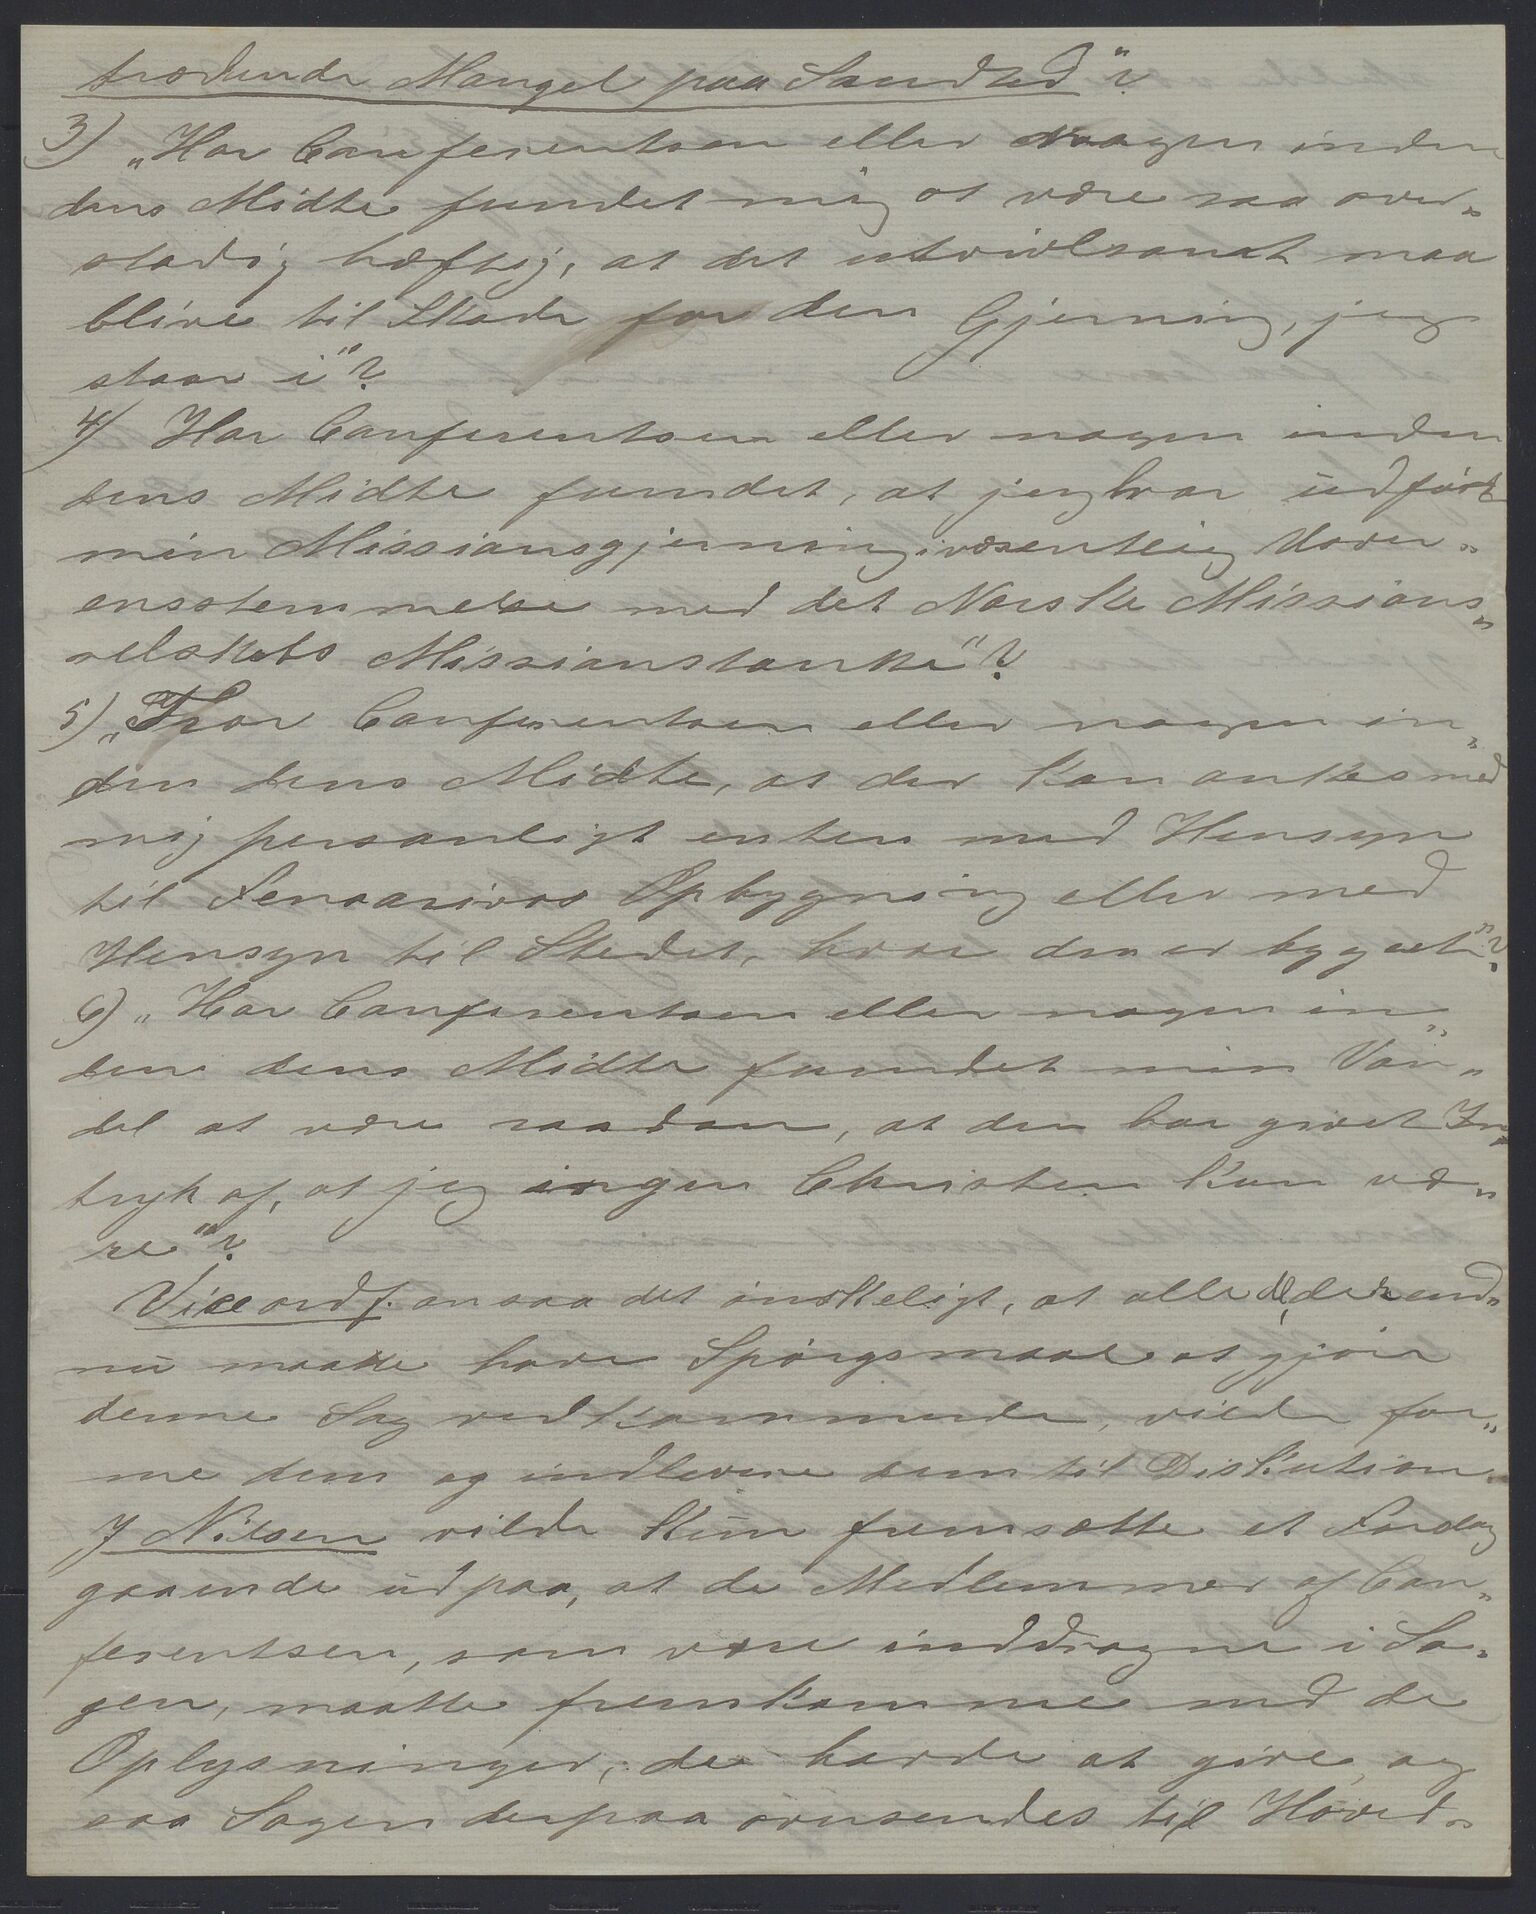 trædende Mangel paa Sandhed"?
3) „Har Conferentsen eller Noagen inden
dens Midte fundet mig at være saa over„
stadig hæftig, at det utvivlsomt maa
blive til Skade for den Gjerning, jeg
staar i"?
4) Har Conferentsen eller nogen inden
dens Midte fundet, at jeg har udført
min Missionsgjerning i væsentlig Uover„
ensstemmelse med det Norske Missions„
selskabs Missionstanke"?
5) „Tror Conferentsen eller nogen in„
den dens Midte, at der kan ankes med
mig personligt enten med Hensyn
til Fenoarivos Opbygning eller med
Hensyn til Stedet, hvor den er bygget"?
6) „Har Conferentsen eller nogen in„
den dens Midte fundet min Van„
del at være saadan, at den har givet Ind„
tryk af, at jeg ingen Christen kan væ„
re"?
Viceordf. ansaa det ønskeligt, at alle de, der end„
nu maatte have Spørgsmaal at gjøre
denne Sag vedkommende, vilde for„
me dem og indlevere dem til Diskution.
J Nilsen vilde kun fremsætte et Forslag
gaaende ud paa, at de Medlemmer af Con„
ferentsen, som vare inddragne i Sa„
gen, maatte fremkomme med de
Oplysninger, de havde at give, og
saa Sagen derpaa oversendes til Hoved„